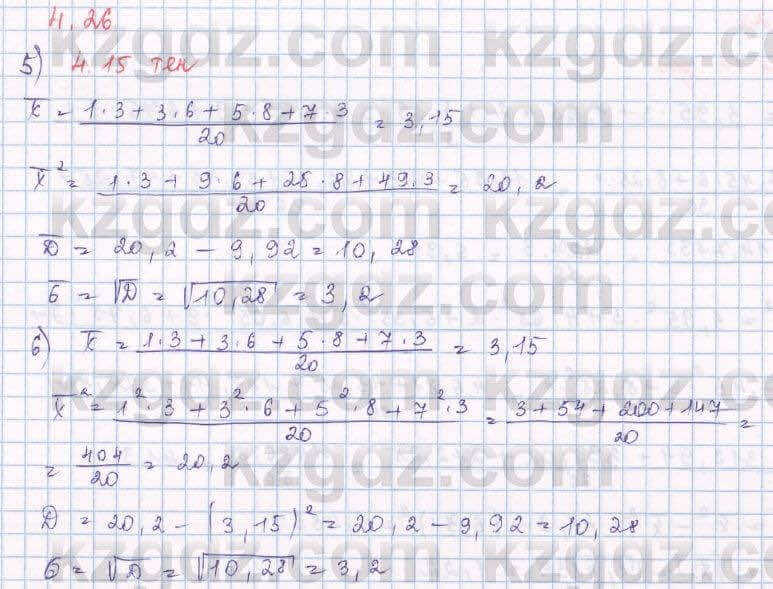 4.26
5) 4.15 тен
x̅ = (1·3 + 3·6 + 5·8 + 7·3)/20 = 3,15
x̅² = (1·3 + 9·6 + 25·8 + 49·3)/20 = 20,2
D̅ = 20,2 − 9,92 = 10,28
σ̅ = √D = √10,28 = 3,2
6) x̅ = (1·3 + 3·6 + 5·8 + 7·3)/20 = 3,15
x̅² = (1²·3 + 3²·6 + 5²·8 + 7²·3)/20 = (3 + 54 + 200 + 147)/20 =
= 404/20 = 20,2
D = 20,2 − (3,15)² = 20,2 − 9,92 = 10,28
σ = √D = √10,28 = 3,2
kzgdz.com
kzgdz.com
kzgdz.com
kzgdz.com
kzgdz.com
kzgdz.com